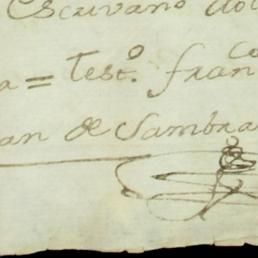 Escrivano do
a = Test.º fran.co
an de Sambra